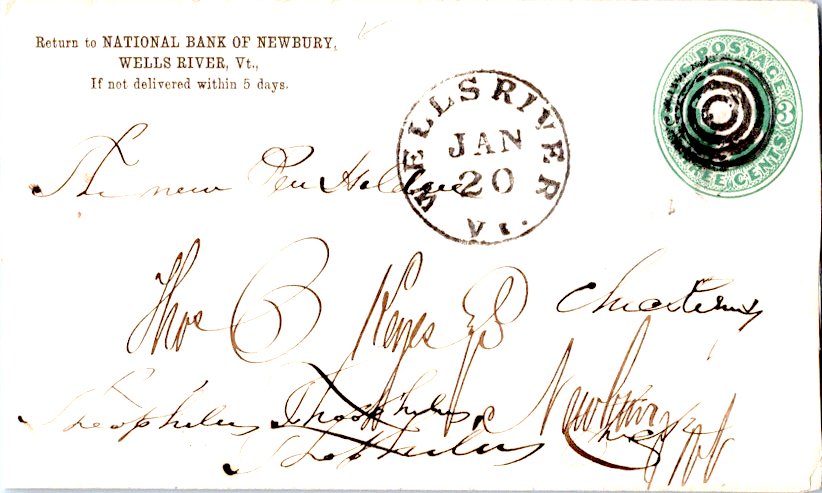 Return to NATIONAL BANK OF NEWBURY,
WELLS RIVER, Vt.,
If not delivered within 5 days.
WELLS RIVER
JAN
20
Vt.
U.S. POSTAGE
3
THREE CENTS
The new Pen Holder
Thos C Keyes
Newbury
Theophilus Theophilus